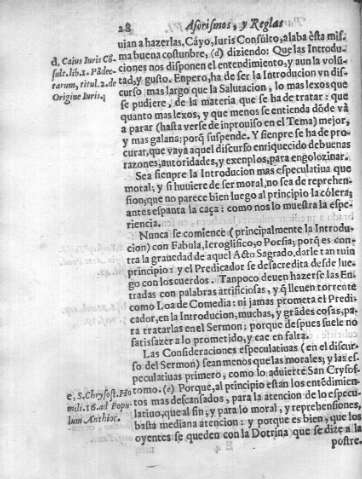 28 Aforismos, y Reglas
uian a hazerlas, Cayo, Iuris Consulto, alaba esta mis-
ma buena costumbre, (d) diziendo: Que las Introdu-
ciones nos disponen el entendimiento, y aun la volũ-
tad, y gusto. Enpero, ha de ser la Introducion vn dis-
curso mas largo que la Salutacion, lo mas lexos que
se pudiere, de la materia que se ha de tratar: que
quanto mas lexos, y que menos se entienda dõde vã
a parar (hasta verse de inprouiso en el Tema) mejor,
y mas galana; porq̃ suspende. Y sienpre se ha de pro-
curar, que vaya aquel discurso enriquecido de buenas
razones, autoridades, y exenplos, para engolozinar.
Sea sienpre la Introducion mas especulatiua que
moral; y si huuiere de ser moral, no sea de reprehen-
sion; que no parece bien luego al principio la cólera;
antes espanta la caça: como nos lo muestra la espe-
riencia.
Nunca se comience (principalmente la Introdu-
cion) con Fabula, Ieroglifico, o Poesia; porq̃ es con-
tra la grauedad de aquel Acto Sagrado, darle tan ruin
principio: y el Predicador se desacredita desde lue-
go con los cuerdos. Tanpoco deuen hazerse las En-
tradas con palabras artificiosas, y q̃ lleuen torrente
como Loa de Comedia: ni jamas prometa el Predi-
cador, en la Introducion, muchas, y grãdes cosas, pa-
ra tratarlas en el Sermon; porque despues suele no
satisfazer a lo prometido, y cae en falta.
Las Consideraciones especulatiuas (en el discur-
so del Sermon) sean menos que las morales; y las es-
peculatiuas primero, como lo aduierte San Crysos-
tomo. (e) Porque, al principio estàn los entẽdimiẽ-
tos mas descansados, para la atencion de lo especu-
latiuo, que al fin; y para lo moral, y reprehensiones,
basta mediana atencion: y porque es bien, que los
oyentes se queden con la Dotrina que se dize a la
postre.
d. Caius Iuris Cõ-
sult. lib. 1. Pãdec-
tarum, titul. 2. de
Origine Iuris.
e. S. Chrysost. Ho-
mili. 16. ad Popu-
lum Anthioc.